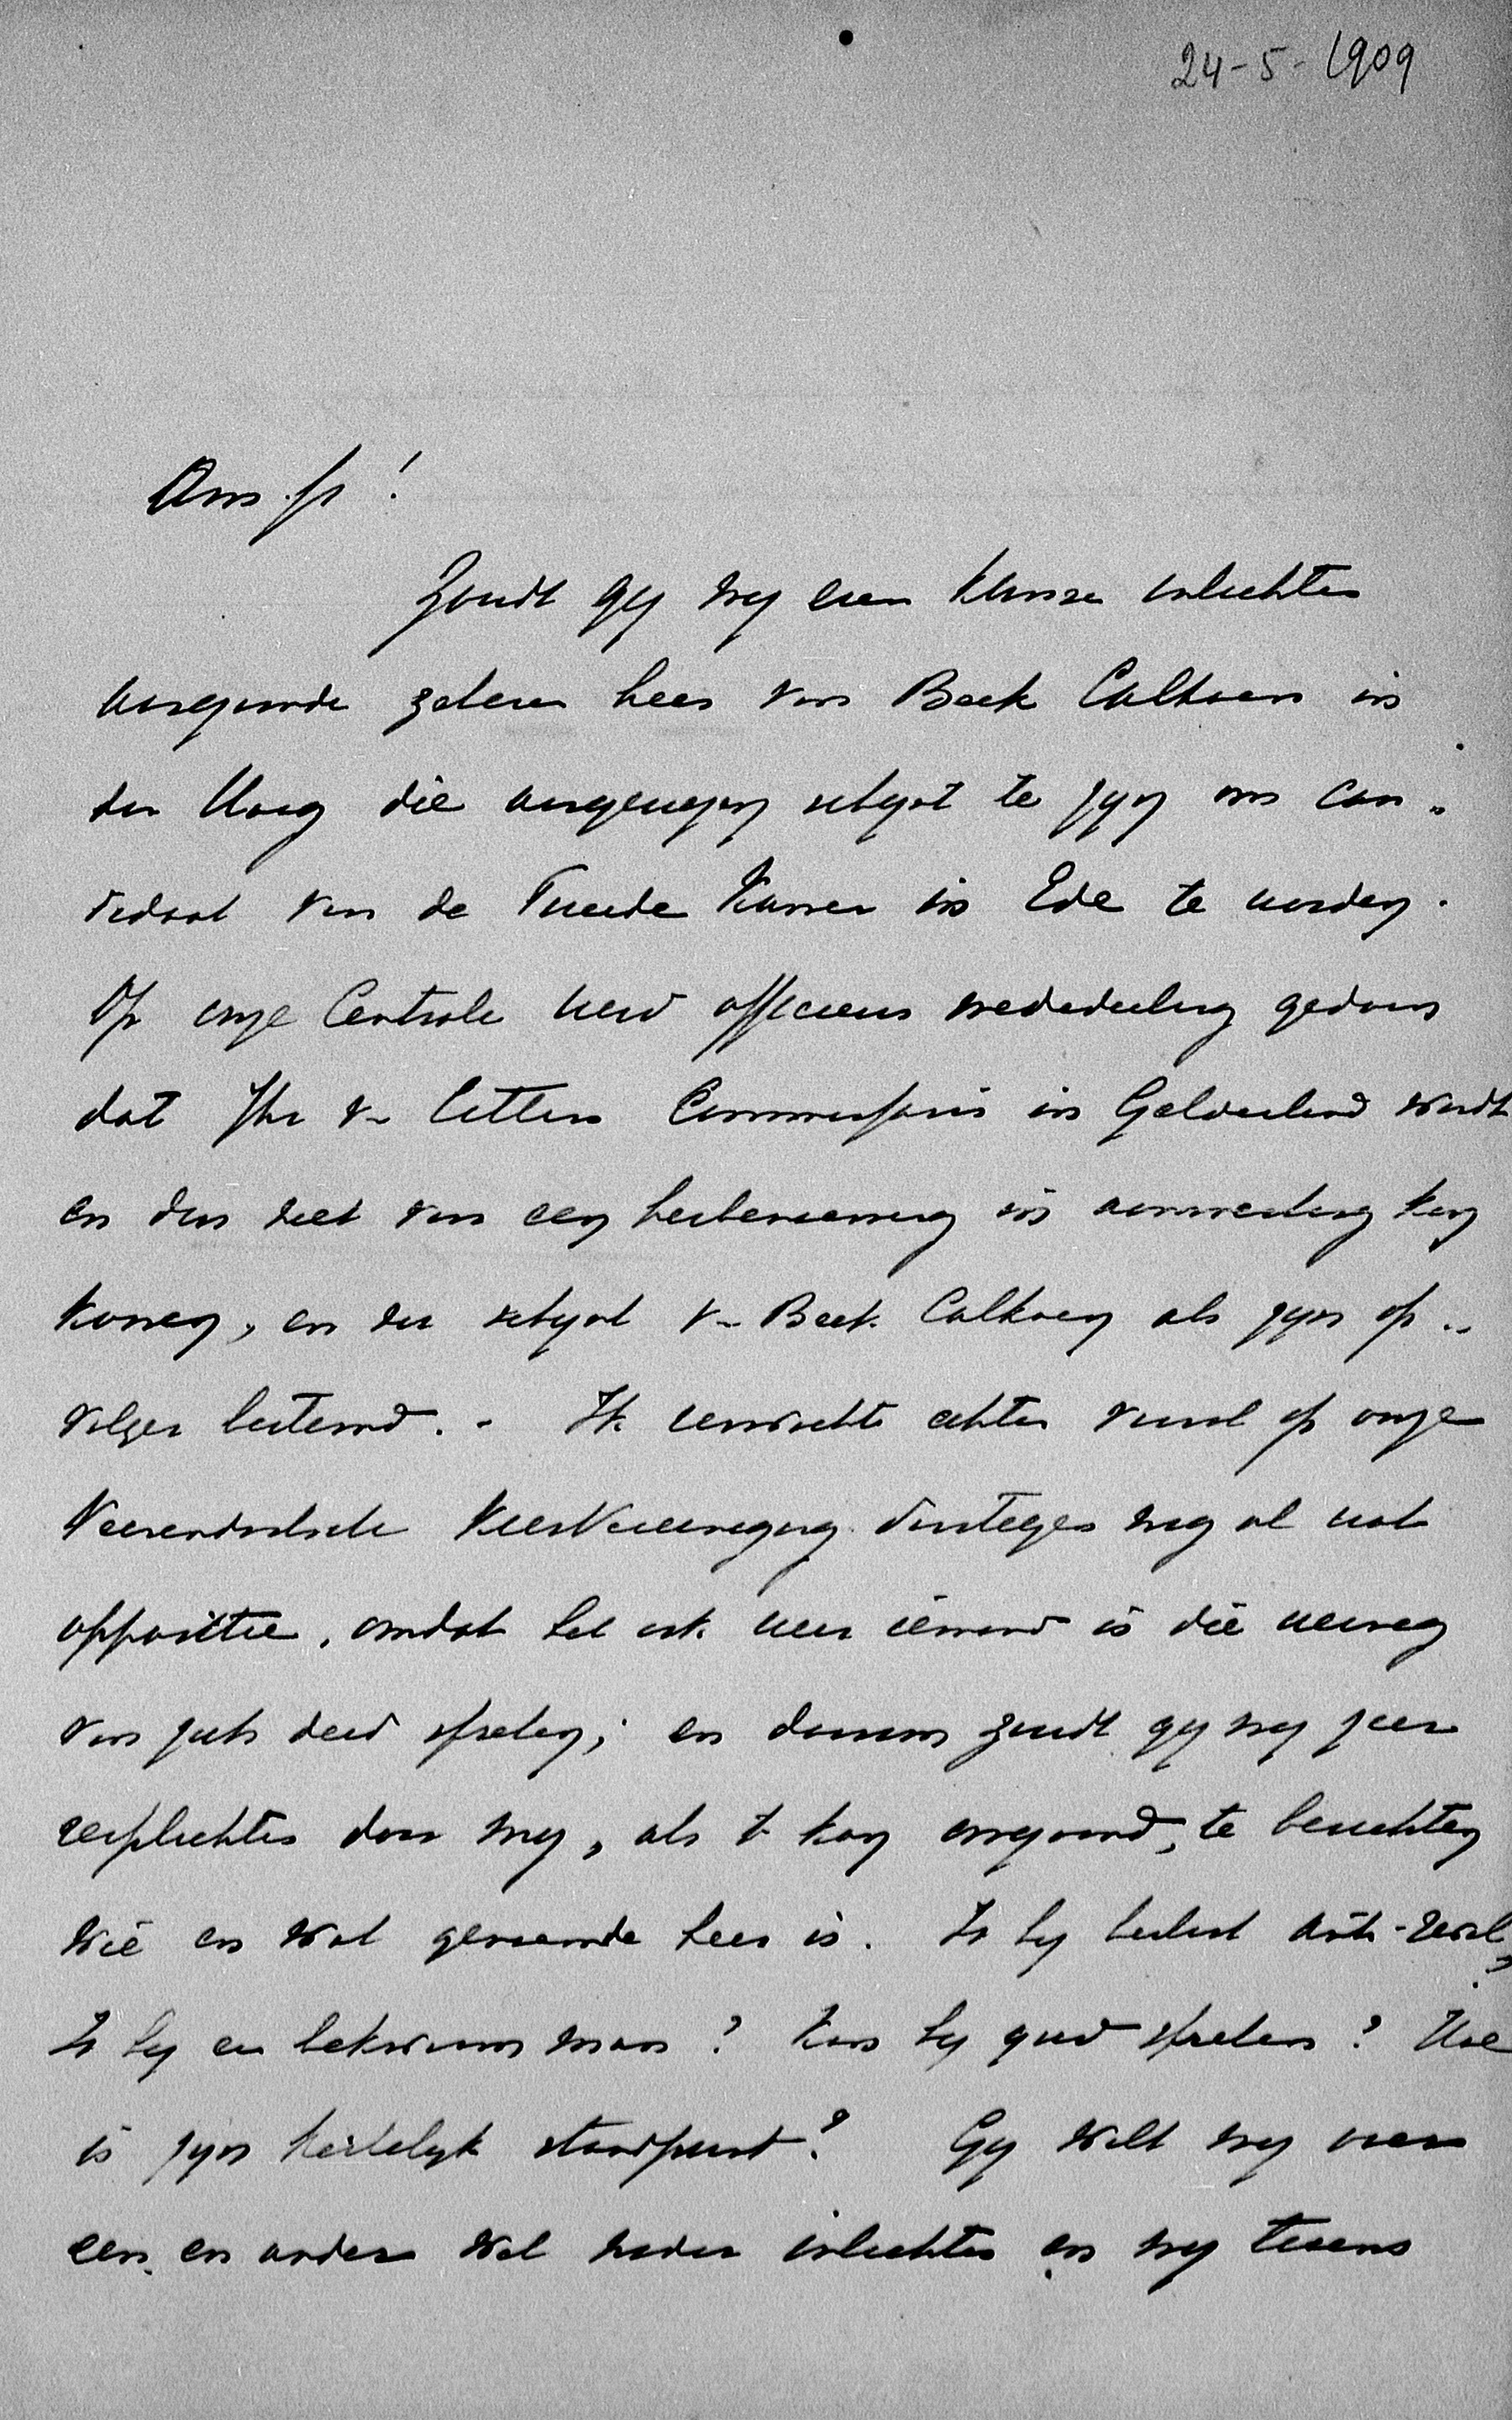 24-5-1909
Amice!
Zoudt gij mij even kunnen inlichten
aangaande zekeren heer van Beek Calkoen in
den Haag die aangewezen schijnt te zijn om can-
didaat van de Tweede Kamer in Ede te worden.
Op onze Centrale werd officieus mededeeling gedaan
dat Jhr v. Citters Commissaris in Gelderland wordt
en dus niet voor een herbenoeming in aanmerking kan
komen, en nu schijnt v. Beek Calkoen als zijn op-
volger bestemd. - Ik verwacht echter vooral op onze
Veenendaalsche Kiesvereeniging daartegen nog al wat
oppositie, omdat het ook weer iemand is die weinig
van zich deed spreken; en daarom zoudt gij mij zeer
verplichten door mij, als 't kan omgaand, te berichten
wie en wat genoemde heer is. Is hij beslist Anti-Revol?
Is hij een bekwaam man? Kan hij goed spreken? Hoe
is zijn kerkelijk standpunt? Gij wilt mij over
een en ander wel nader inlichten en mij tevens